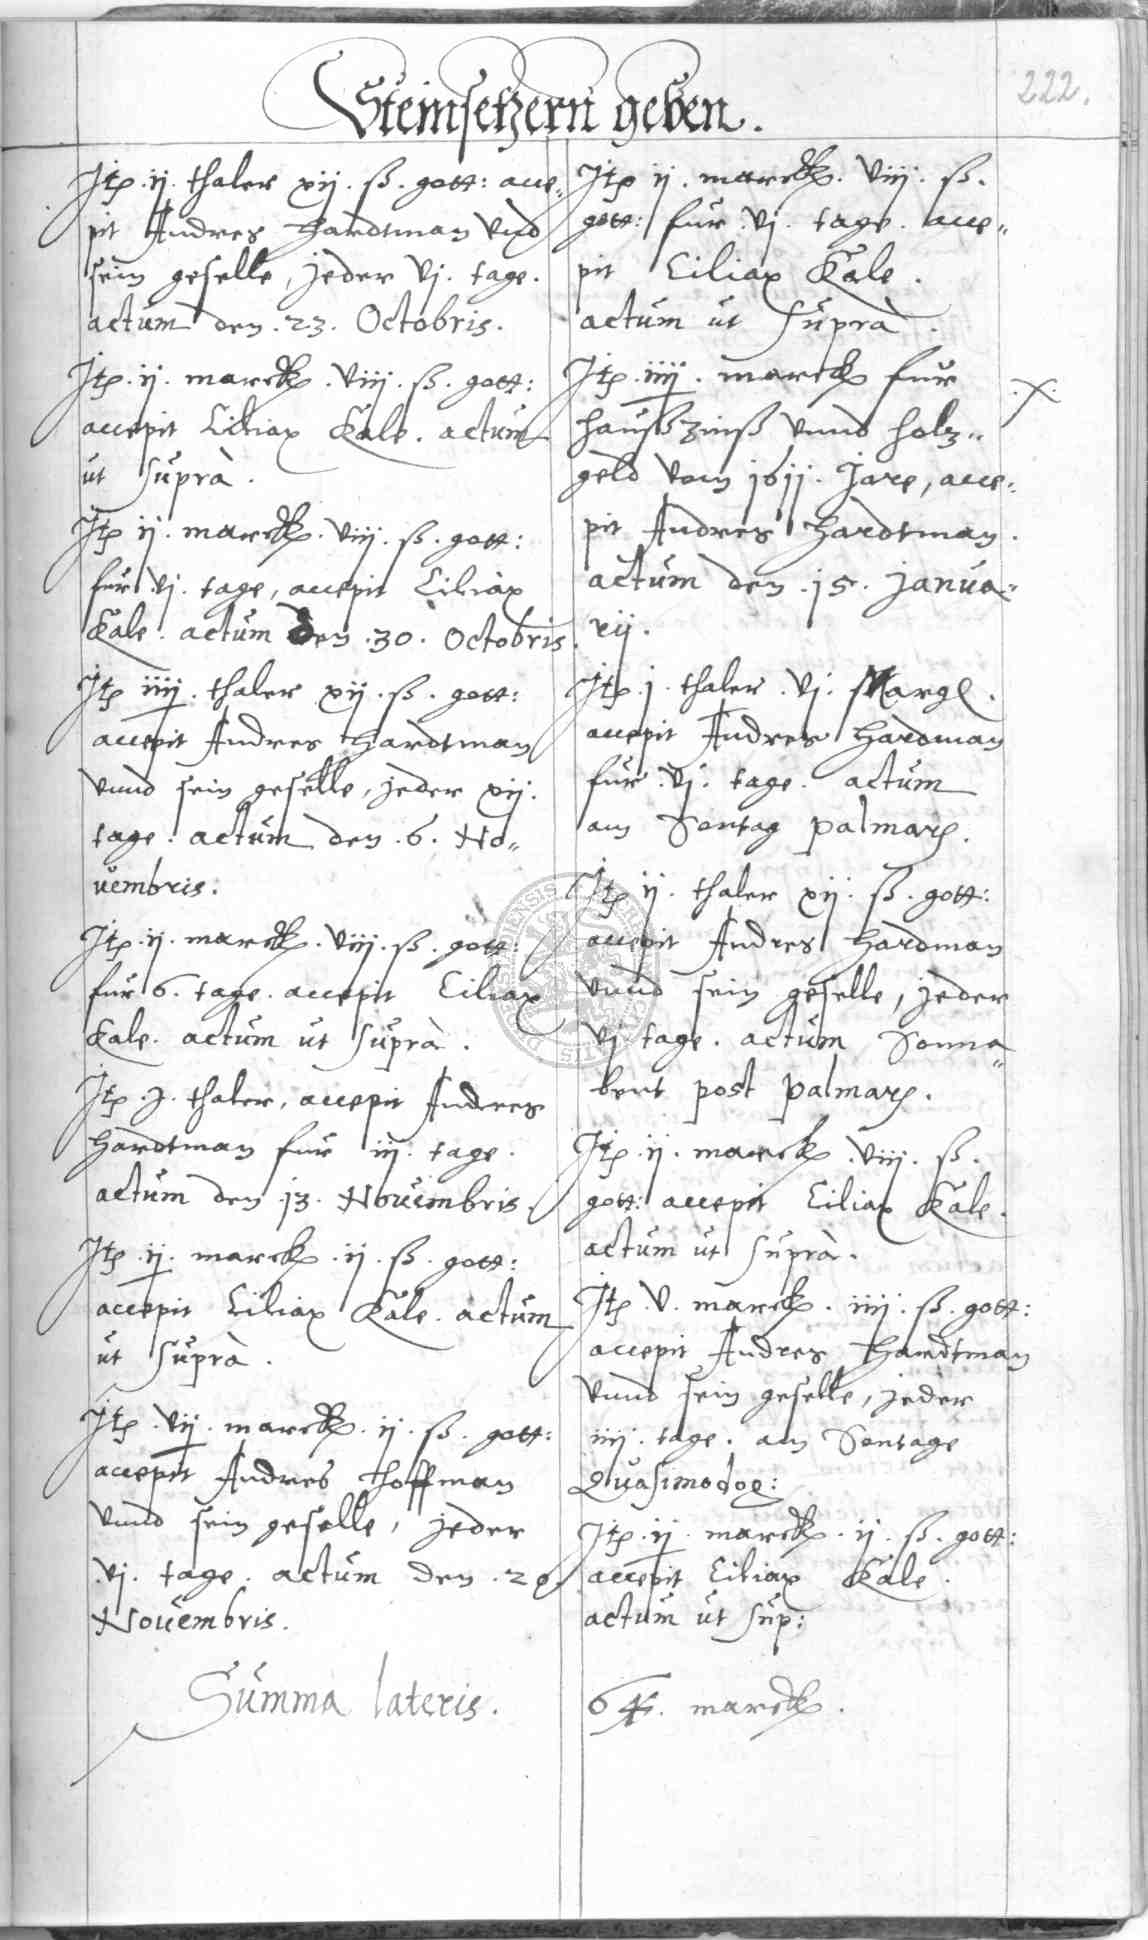 222.
Steinsetzern geben.
Itē .ij. thaler xij. ß. gott: acce„
pit Andres Hardtman vnd
sein geselle, jeder vj. tage.
actum den .23. Octobris.
Itē .ij. marck .viij. ß. gott:
accepit Ciliax Kale. actum
ut suprà.
Itē ij. marck. viij. ß. gott:
fur vj. tage, accepit Ciliax
Kale. actum den .30. Octobris.
Itē iiij. thaler xij. ß. gott:
accepit Andres Hardtman
vnnd sein geselle, jeder xij.
tage. actum den .6. No„
uembris.
Itē .ij. marck. viij. ß. gott:
fur 6. tage. accepit Ciliax
Kale. actum ut suprà.
Itē .j. thaler, accepit Andres
Hardtman fur iij. tage.
actum den 13. Nouembris.
Itē ij. marck .ij. ß. gott:
accepit Ciliax Kale. actum
ut suprà.
Itē .vij. marck. ij. ß. gott:
accepit Andres Hoffman
vnnd sein geselle, jeder
vj. tage. actum den .20.
Nouembris.
Itē ij. marck. viij. ß.
gott: fur vj. tage. acce„
pit Ciliax Kale.
actum ut suprà.
Itē .iiij. marck fur
haußzinß vnnd holtz„
geld vom 1611. Jare, acce„
pit Andres Hardtman.
actum den .15. Janua„
rij.
Itē .j. thaler .vj. Margl.
accepit Andres Hardman
fur .vj. tage. actum
am Sontag palmarū.
Itē ij. thaler xij. ß. gott:
accepit Andres Hardman
vnnd sein geselle, jeder
vj. tage. actum Sonna„
bent post palmarū.
Itē .ij. marck .viij. ß.
gott: accepit Ciliax Kale.
actum ut suprà.
Itē .v. marck. iiij. ß. gott:
accepit Andres Hardtman
vnnd sein geselle, jeder
iiij. tage. am Sontage
Quasimodog:
Itē .ij. marck. ij. ß. gott:
accepit Ciliax Kale.
actum ut sup:
Summa lateris. marck.